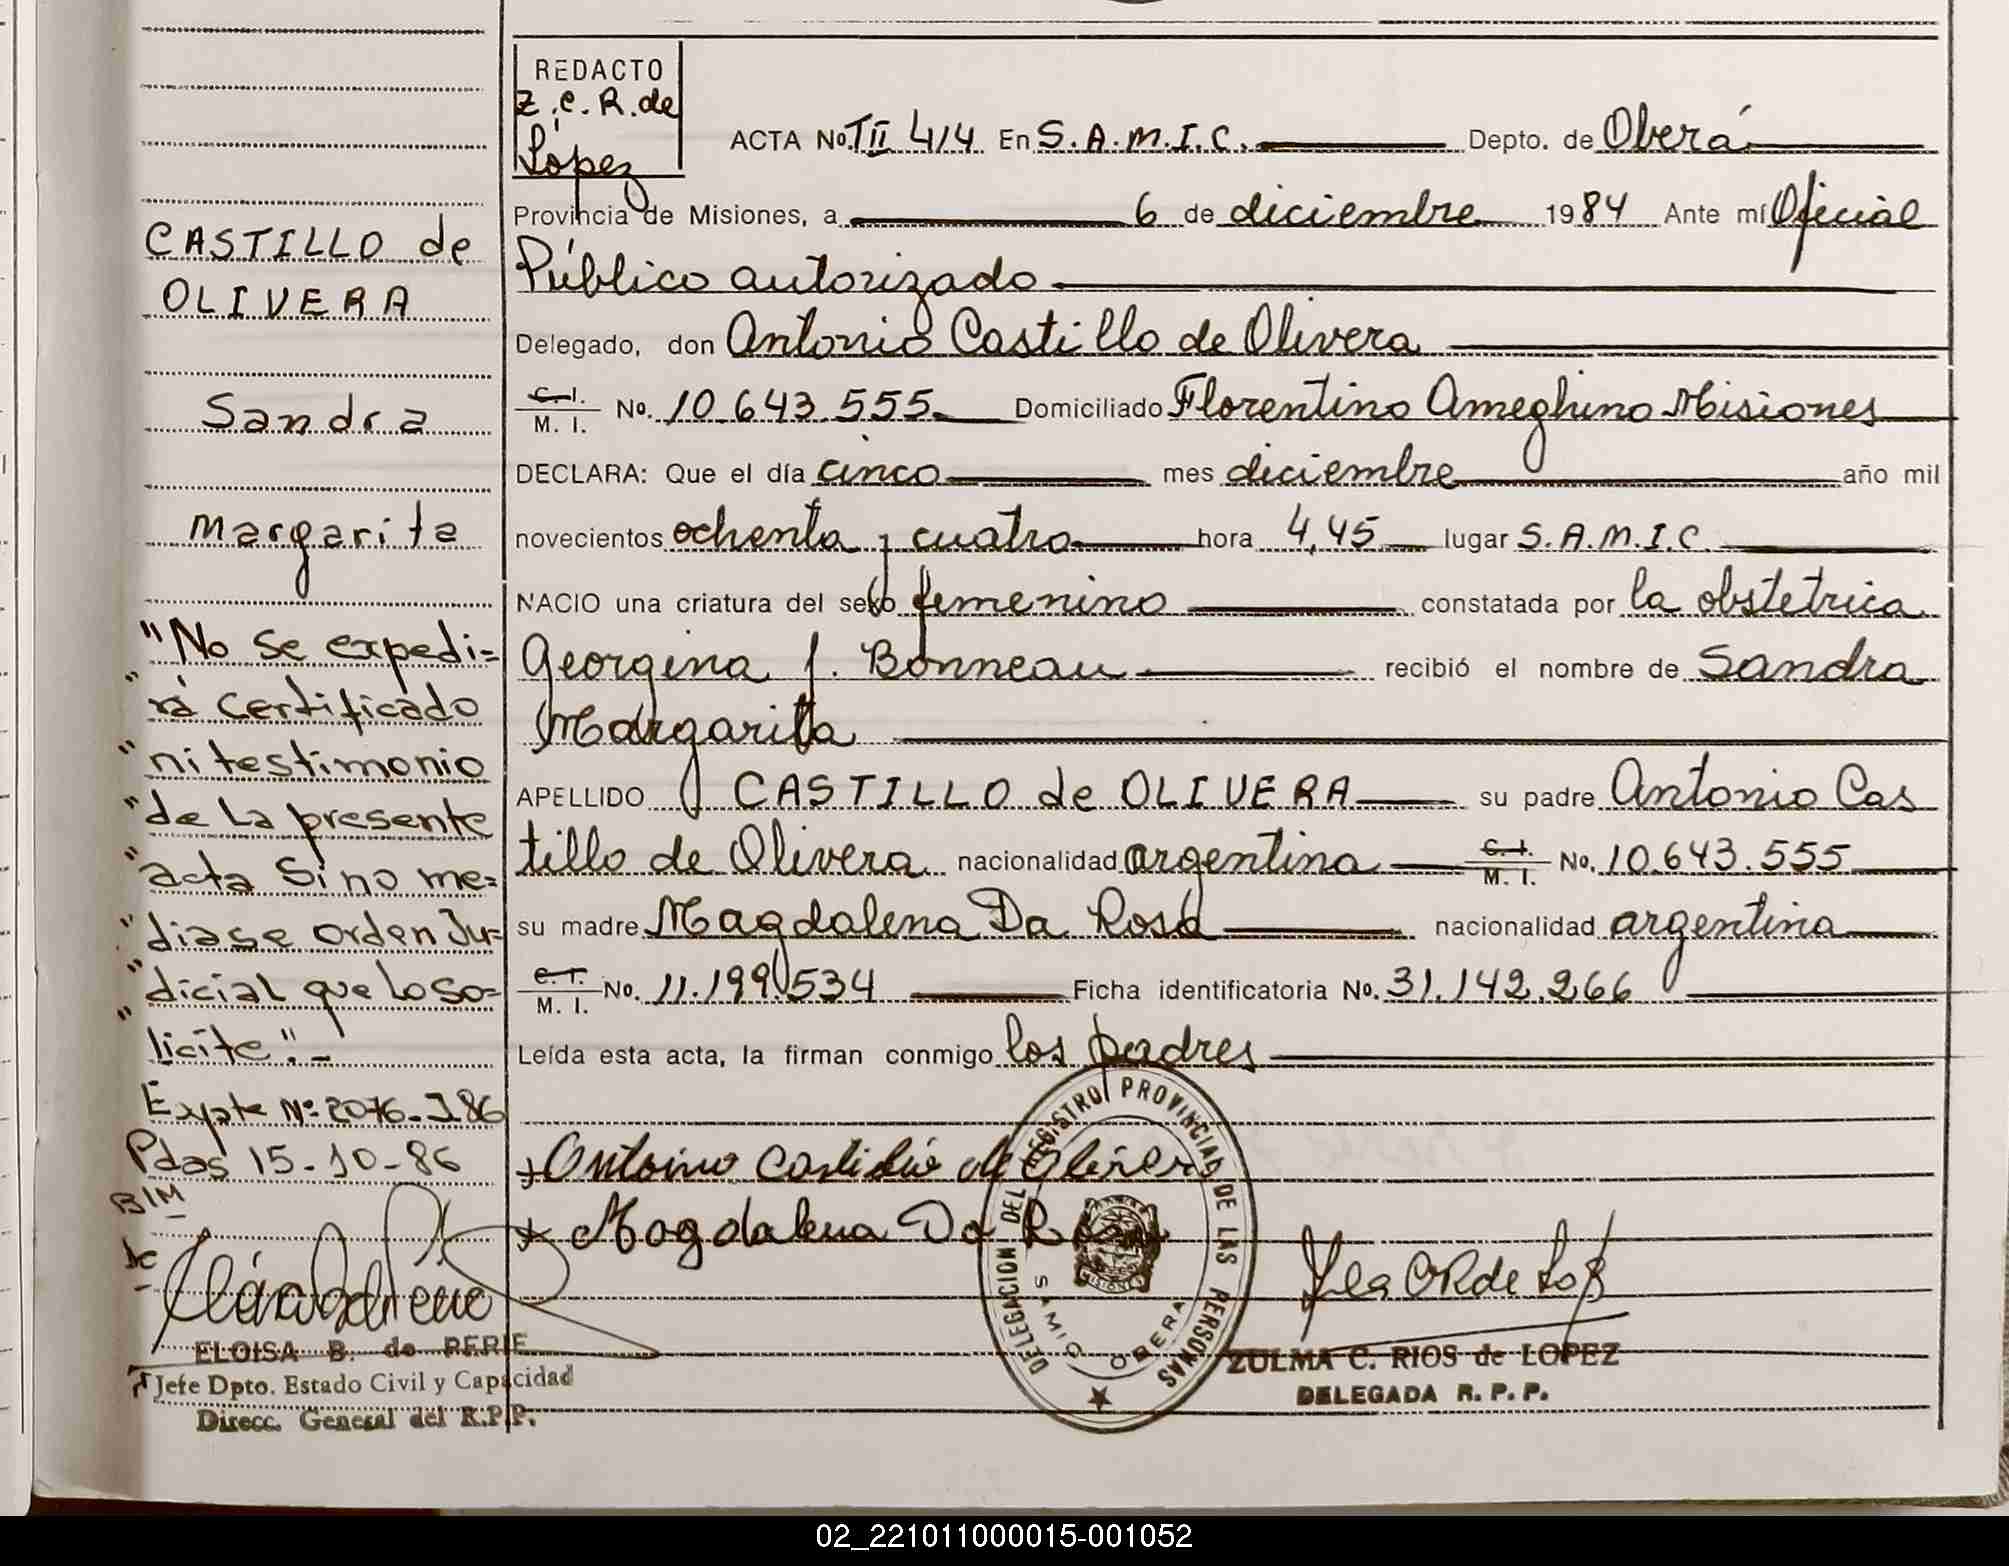 REDACTO
Z.C.R. de
López
ACTA No. TII 414 En S.A.M.I.C. Depto. de Oberá
Provincia de Misiones, a 6 de diciembre 1984 Ante mí Oficial
Público autorizado
Delegado, don Antonio Castillo de Olivera
C. I.
M. I. No. 10.643.555 Domiciliado Florentino Ameghino Misiones
DECLARA: Que el día cinco mes diciembre año mil
novecientos ochenta y cuatro hora 4,45 lugar S.A.M.I.C.
NACIO una criatura del sexo femenino constatada por la obstetrica
Georgina J. Bonneau recibió el nombre de Sandra
Margarita
APELLIDO CASTILLO de OLIVERA su padre Antonio Cas
tillo de Olivera nacionalidad argentina C. I. M. I. No. 10.643.555
su madre Magdalena Da Rosa nacionalidad argentina
C. I.
M. I. No. 11.199.534 Ficha identificatoria No. 31.142.266
Leída esta acta, la firman conmigo los padres
CASTILLO de
OLIVERA
Sandra
Margarita
"No se expedi=
"rá certificado
"ni testimonio
"de la presente
"acta Sino me=
"diase orden Ju=
"dicial que lo so=
"licite".-
Expte Nº 2076-J86
Pdas 15-10-86
BIM
ELOISA B. de PERIE
Jefe Dpto. Estado Civil y Capacidad
Direcc. General del R.P.P.
Magdalena Da Rosa
DELEGACION DEL REGISTRO PROVINCIAL DE LAS PERSONAS
SAMIC OBERA
ZULMA C. RIOS de LOPEZ
DELEGADA R. P. P.
02_221011000015-001052